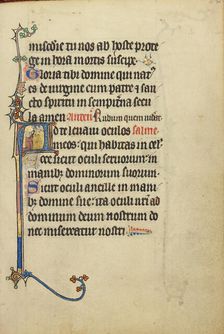 misedie tu nos ab hoste prote
ge in hora mortis suscipe.
Gloria tibi domine qui nat'
es de uirgine cum patre et san
cto spiritu in sempitna secu
la amen. Rubum quem uidat
Ad te leuaui oculos
meos: qui habitas in cel
Ecce sicut oculi seruorum: in
manib; dominorum suorum.
Sicut oculi ancille in mani
b; domine sue: ita oculi nri ad
dominum deum nostrum do
nec misereatur nostri